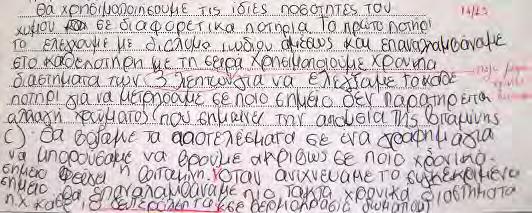 θα χρησιμοποιησουμε τις ιδιες ποσοτητες του
χυμου σε διαφορετικα ποτηρια. Το πρωτο ποτηρι
το ελεγχουμε με διαλυμα ιωδιου αμεσως και επαναλαμβαναμε
στο καθε ποτηρι με τη σειρα χρησιμοποιουμε χρονικα
διαστηματα των 3 λεπτων για να ελεγξαμε το καθε
ποτηρι για να μετρησαμε σε ποιο σημειο δεν παρατηρειται
αλλαγη χρωματος που σημαινει την απουσια της βιταμινης
c). Θα βαζαμε τα αποτελεσματα σε ενα γραφημα για
να μπορουσαμε να βρουμε ακριβως σε ποιο χρονικο
σημειο φευγει η βιταμινη. Οταν ανιχνευαμε το συγκεκριμενο
σημειο θα επαναλαμβαναμε πιο τακτα χρονικα διαστηματα
π.χ καθε δευτερολεπτα σε θερμοκρασια δωματιου